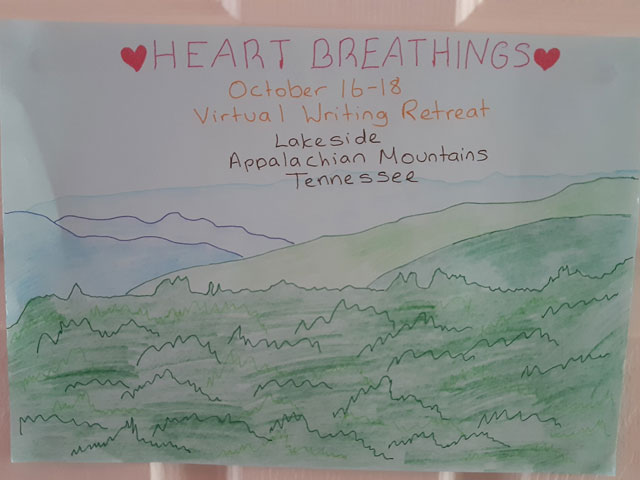 HEART BREATHINGS
October 16-18
Virtual Writing Retreat
Lakeside
Appalachian Mountains
Tennessee